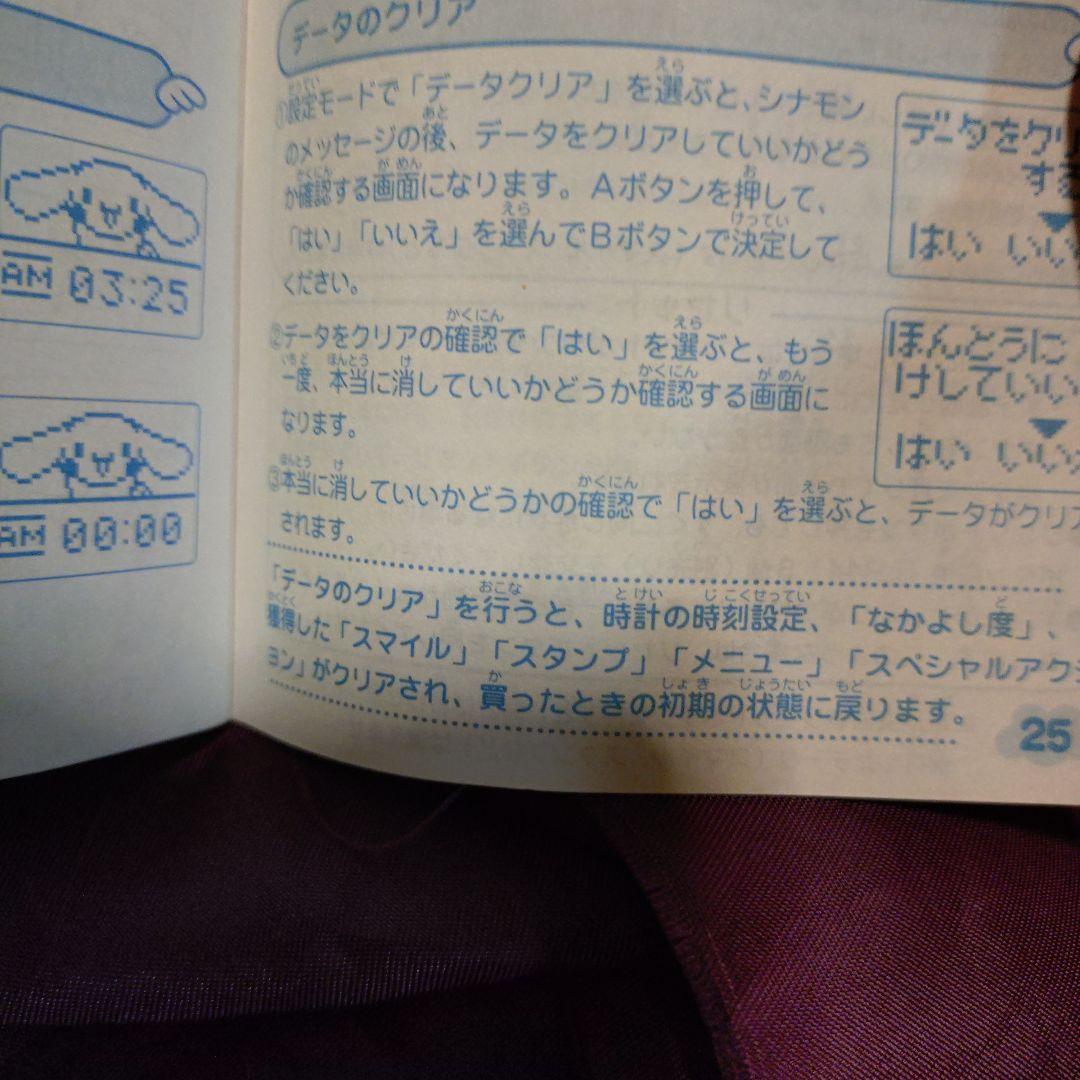 AM 03:25
AM 00:00
データのクリア
①設定モードで「データクリア」を選ぶと、シナモン
のメッセージの後、データをクリアしていいかどう
か確認する画面になります。Aボタンを押して、
「はい」「いいえ」を選んでBボタンで決定して
ください。
データをクリ
する
はい いい
②データをクリアの確認で「はい」を選ぶと、もう
一度、本当に消していいかどうか確認する画面に
なります。
ほんとうに
けしていい
はい いいえ
③本当に消していいかどうかの確認で「はい」を選ぶと、データがクリア
されます。
「データのクリア」を行うと、時計の時刻設定、「なかよし度」、
獲得した「スマイル」「スタンプ」「メニュー」「スペシャルアクシ
ョン」がクリアされ、買ったときの初期の状態に戻ります。
25